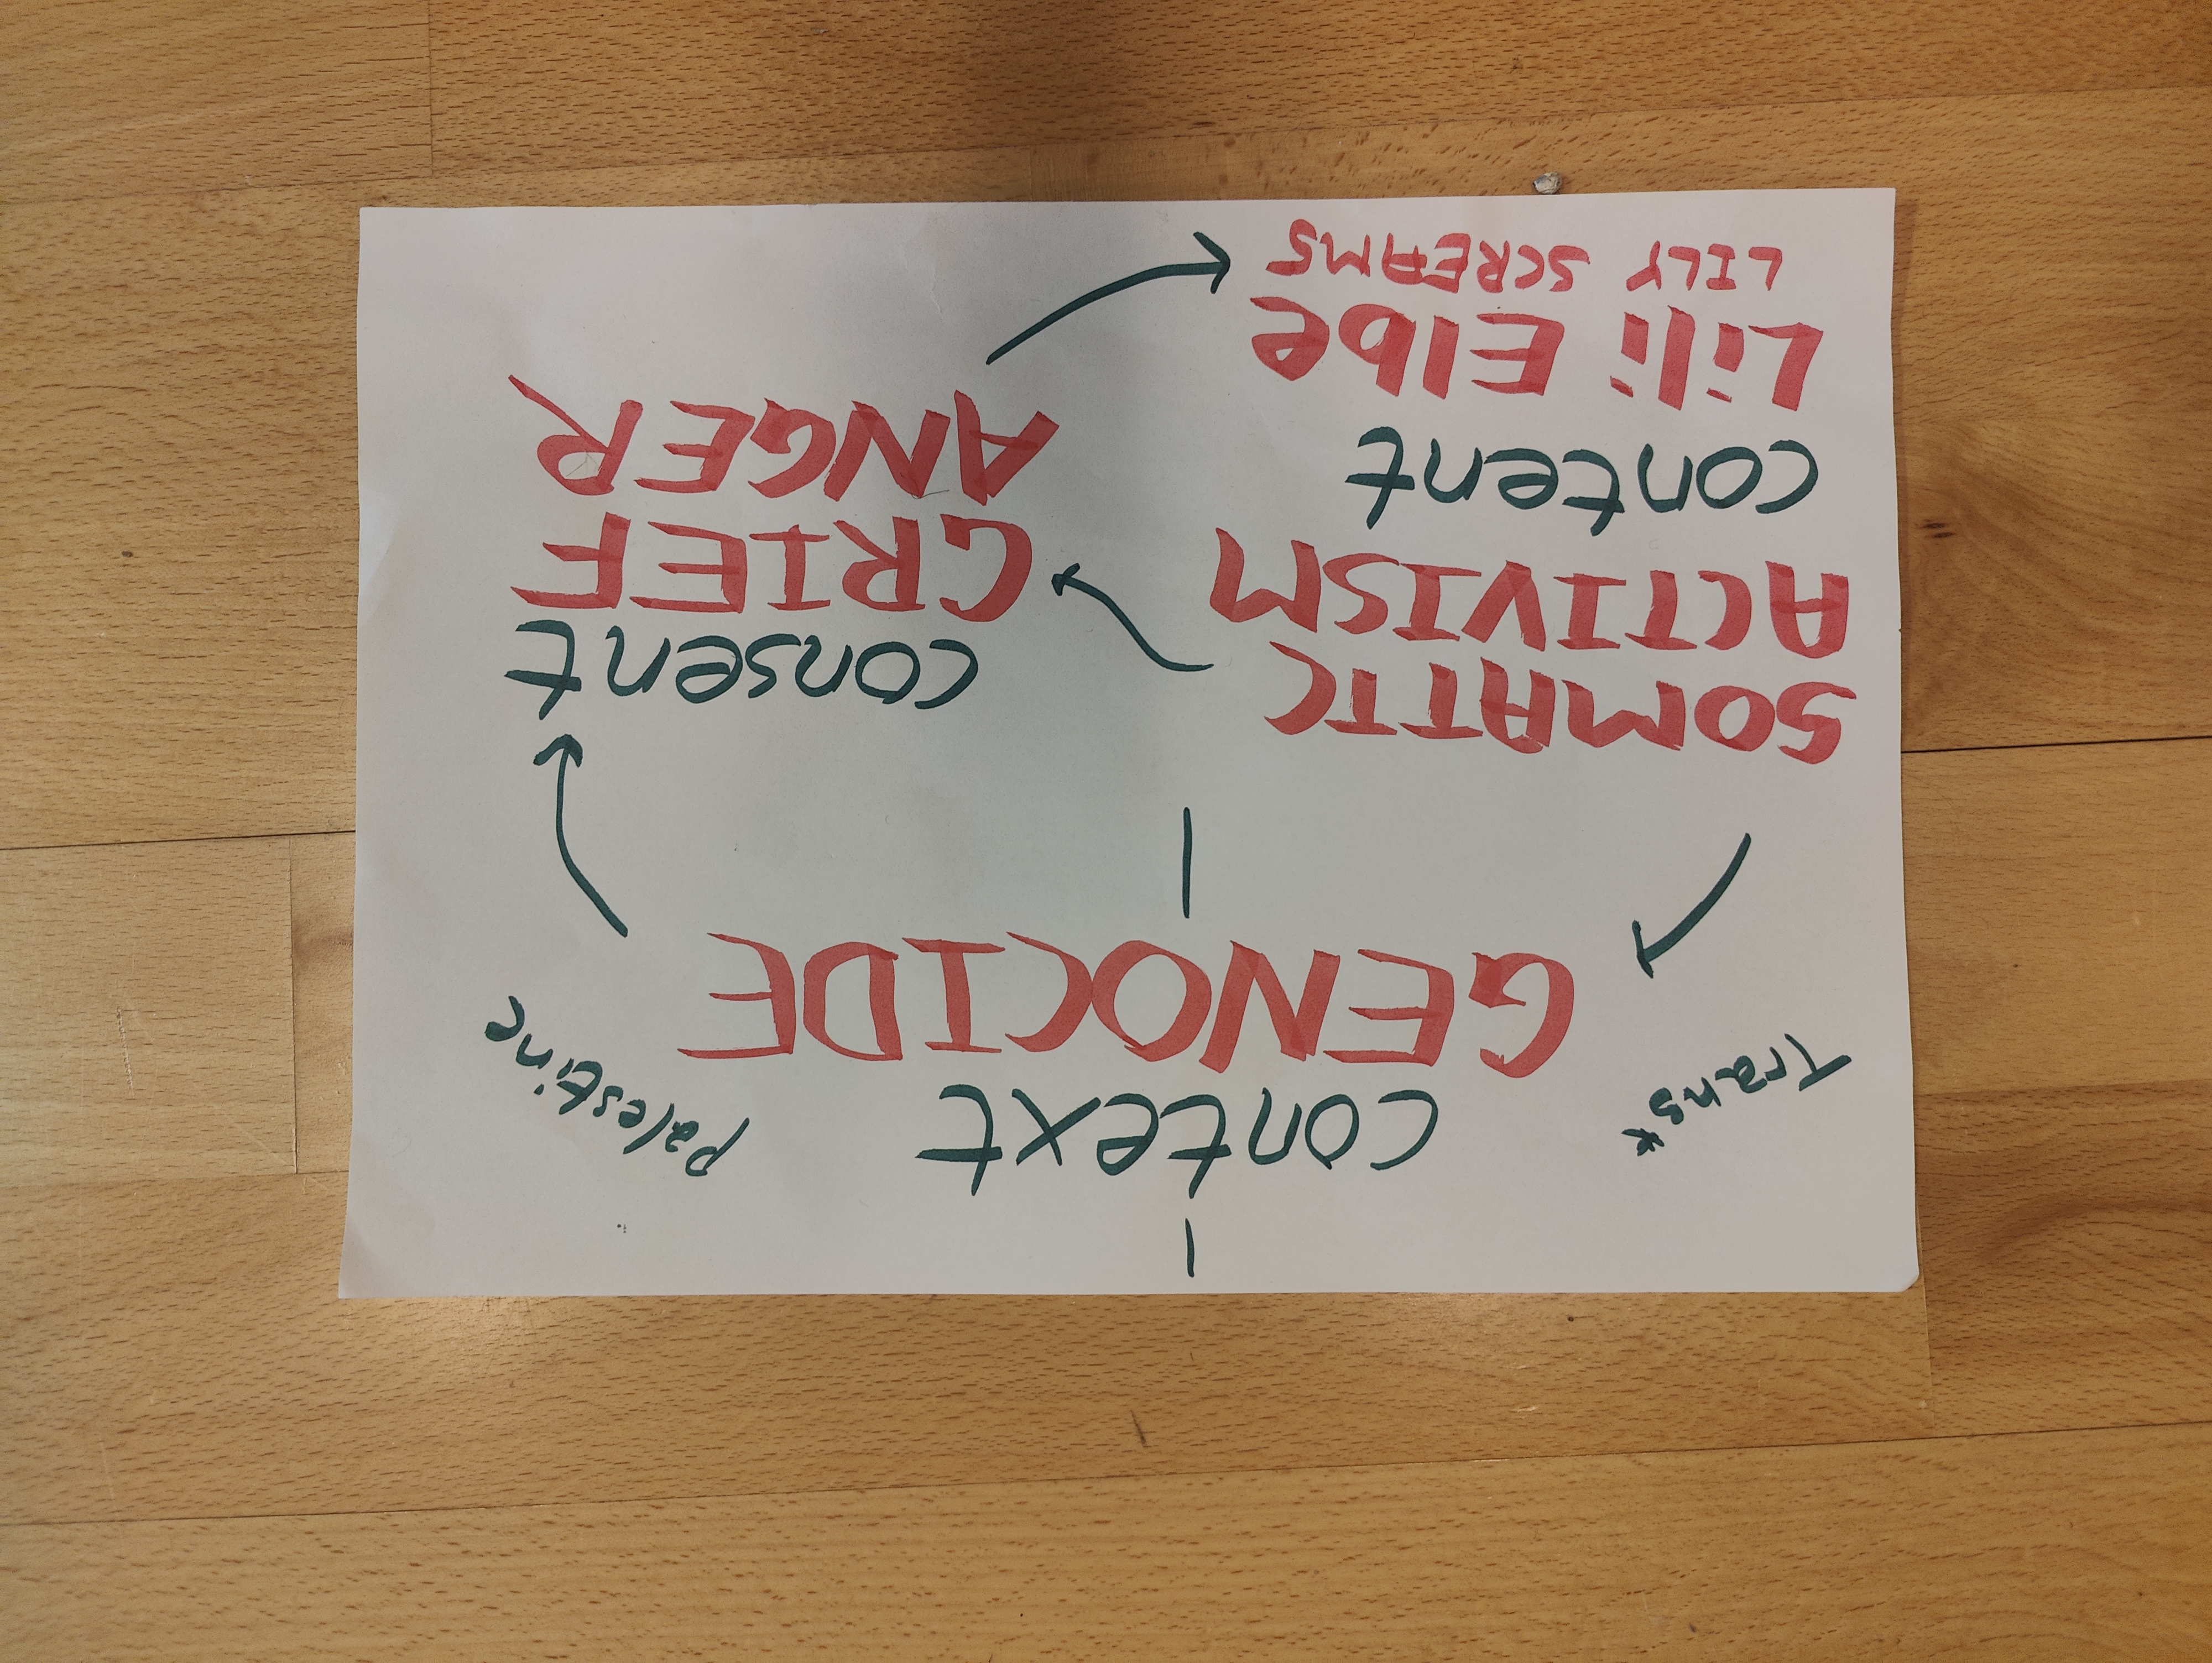 context
GENOCIDE
Trans*
palestine
SOMATIC
ACTIVISM
content
Lili Elbe
LILY SCREAMS
consent
GRIEF
ANGER